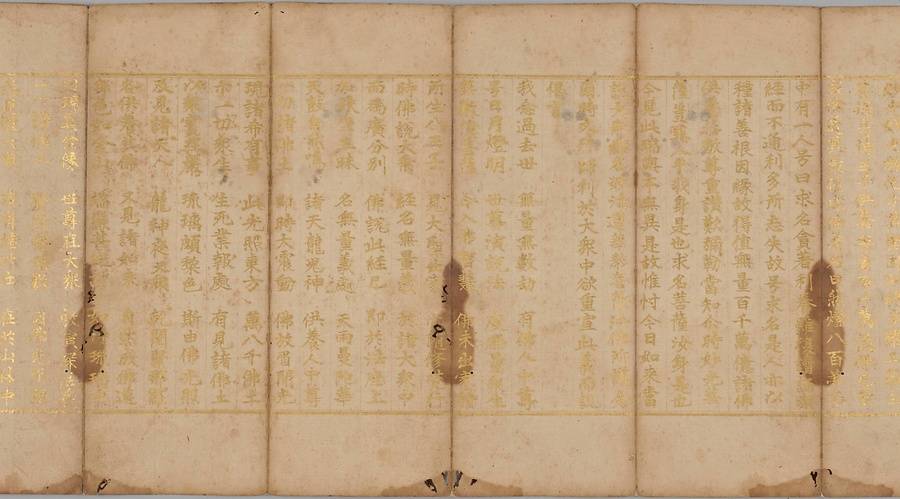 日然燈八百弟子
中有一人号曰求名貪著利養雖復讀誦衆
經而不通利多所忘失故号求名是人亦以
種諸善根因緣故得值無量百千萬億諸佛
供養恭敬尊重讚歎彌勒當知尒時妙光菩
薩豈異人乎我身是也求名菩薩汝身是也
今見此瑞與本無異是故惟忖今日如來當
說大乘經名妙法蓮華教菩薩法佛所護念
爾時文殊師利於大衆中欲重宣此義而說
偈言
我念過去世 無量無數劫 有佛人中尊
号日月燈明 世尊演說法 度無量衆生
無數億菩薩 令入佛智慧 佛未出家時
所生八王子 見大聖出家 亦隨修梵行
時佛說大乘 經名無量義 於諸大衆中
而爲廣分別 佛說此經已 即於法座上
跏趺坐三昧 名無量義處 天雨曼陀華
天鼓自然鳴 諸天龍鬼神 供養人中尊
一切諸佛土 即時大震動 佛放眉間光
現諸希有事 此光照東方 萬八千佛土
示一切衆生 生死業報處 有見諸佛土
以衆寶莊嚴 琉璃頗梨色 斯由佛光照
及見諸天人 龍神夜叉衆 乾闥緊那羅
各供養其佛 又見諸如來 自然成佛道
身色如金山 端嚴甚微妙 如淨琉璃中
内現真金像 世尊在大衆 敷演深法義
一一諸佛土 聲聞衆無數 因佛光所照
或有諸比丘 在於山林中